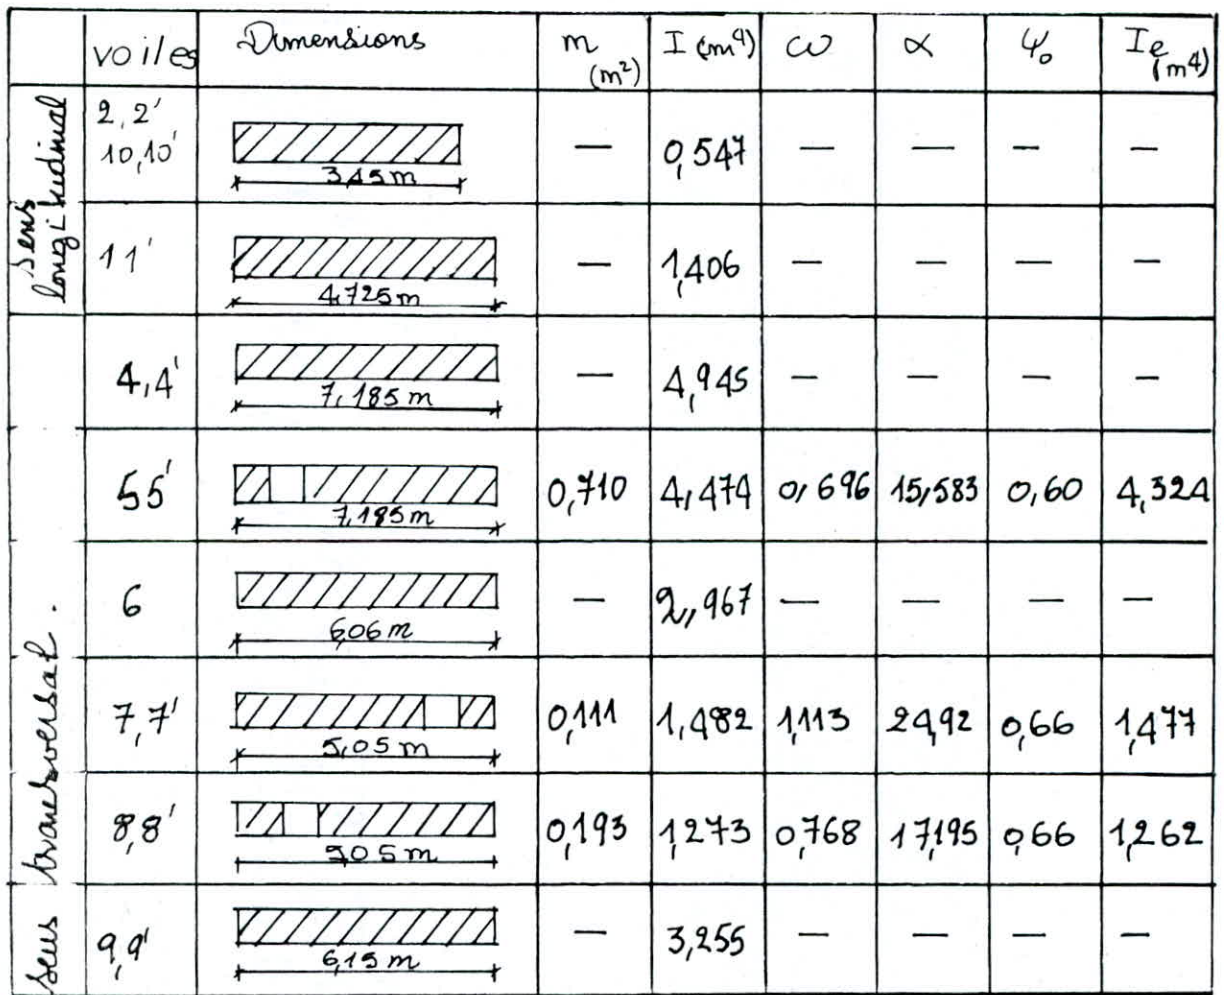 voiles Dimensions m (m²) I (m⁴) ω α Ψ₀ Ie (m⁴)
Sens longitudinal
2,2'
10,10' 3,45m — 0,547 — — — —
11' 4,725m — 1,406 — — — —
Sens transversal.
4,4' 7,185m — 4,945 — — — —
55' 7,185m 0,710 4,474 0,696 15,583 0,60 4,324
6 6,06m — 2,967 — — — —
7,7' 5,05m 0,111 1,482 1,113 24,92 0,66 1,477
8,8' 5,05m 0,193 1,273 0,768 17,195 0,66 1,262
9,9' 6,15m — 3,255 — — — —